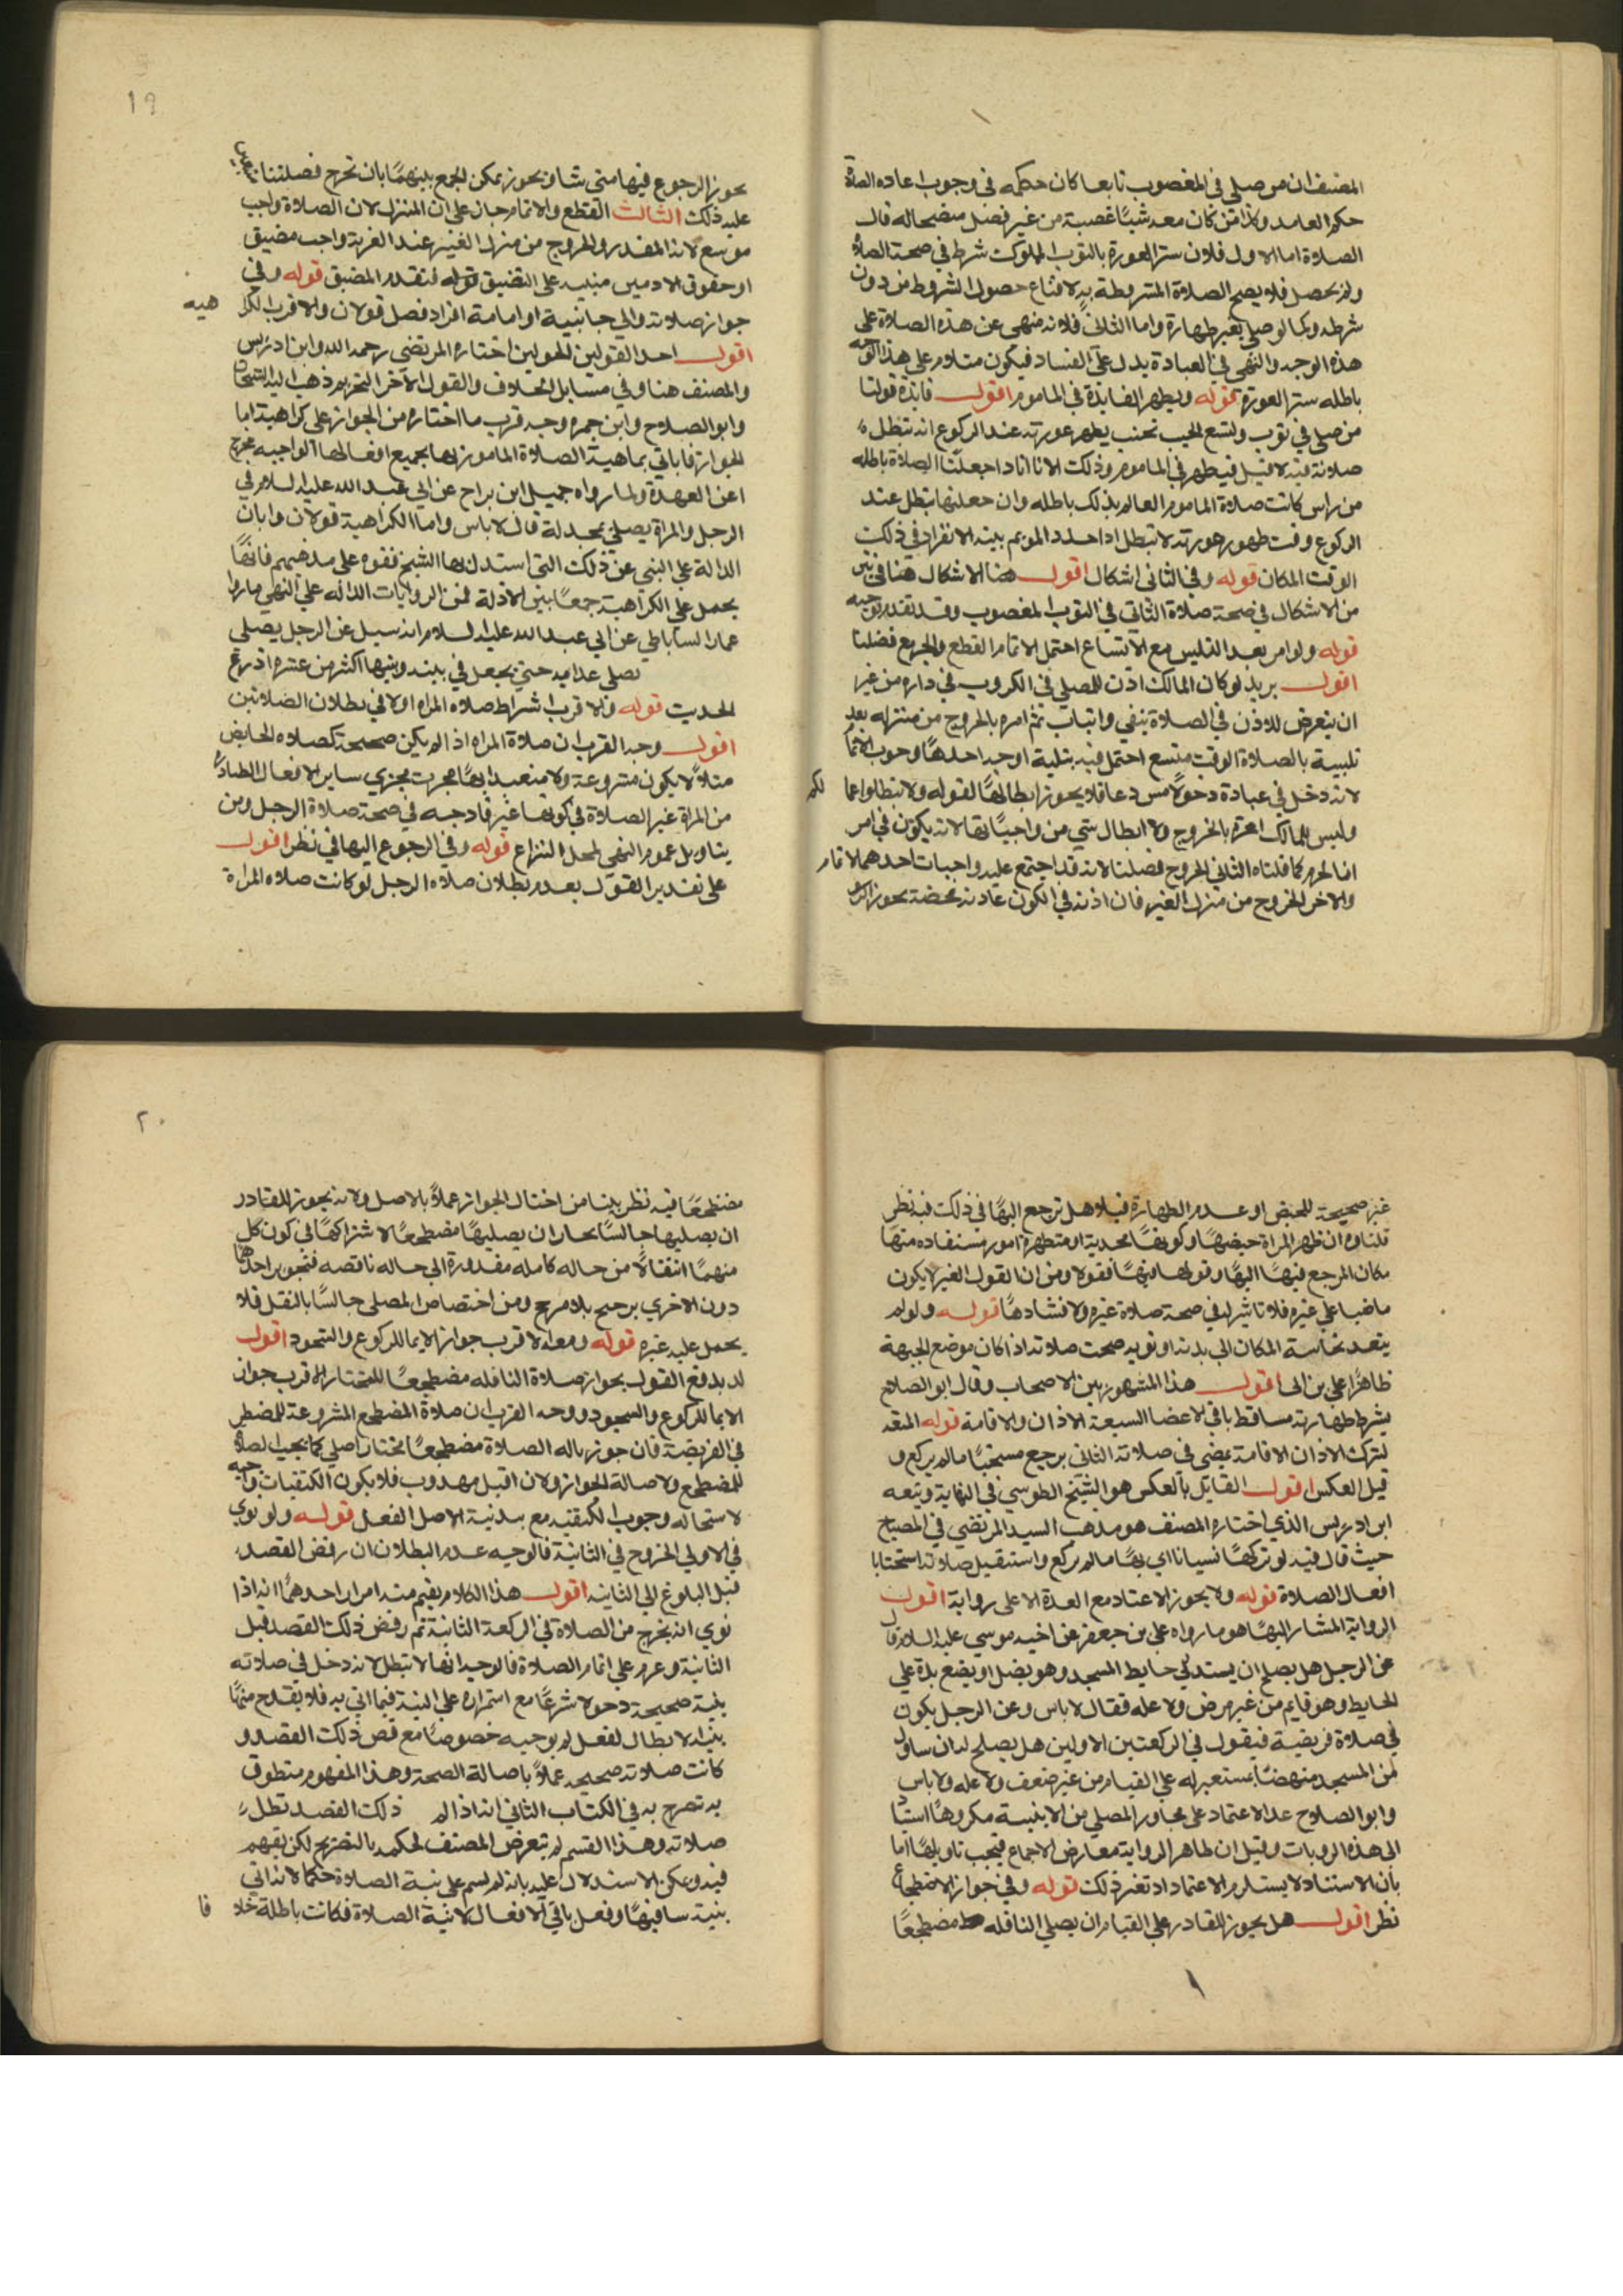 المصنف ان من صلى فى المغصوب تابعا كان حكمه فى وجوب اعاده الصلاة
حكم العامد وكذا من كان معه شيئا غصبية من غير فصل
الصلاة اما الاول فلان ستر العورة بالثوب المملوك شرط فى صحة الصلاة
ولم يحصل فلا يصح الصلاة المشروطة به لامتناع حصول المشروط من دون
شرطه وكما لو صلى بغير طهارة واما الثانى فلانه منهى عن هذه الصلاة على
هذه الوجه والنهى فى العبادة يدل على الفساد فيكون صلاته على هذا الوجه
باطله ستر العورة قوله ويظهر الفايدة فى الماموم اقول فايدة قولنا
من صلى فى ثوب واسع الجيب بحيث يظهر عورته عند الركوع انه تبطل
صلاته فيه لا قبله فيظهر فى الماموم وذلك لانا اذا جعلنا الصلاة باطله
من راس كانت صلاة الماموم العالم بذلك باطله وان جعلنها تبطل عند
الركوع وقت ظهور عورته لا تبطل اذا جدد الموتم نية الانفراد فى ذلك
الوقت المكان قوله وفى الثانى اشكال اقول هنا الاشكال هنا
من الاشكال فى صحة صلاة الثانى فى الثوب المغصوب وقد تقدم توجيه
قوله ولو امر بعد التلبس مع الاتساع احتمل الاتمام القطع والخروج مصليا
اقول يريد لو كان المالك اذن للمصلى فى الكون فى داره من غير
ان يتعرض للاذن فى الصلاة بنفى واثبات ثم امره بالخروج من منزله بعد
تلبسه بالصلاة الوقت متسع احتمل فيه ثلثة اوجه احدها وجوب الاتمام
لانه دخل فى عبادة دخولا مشروعا فلا يجوز ابطالها لقوله ولا تبطلوا اعمالكم
وليس للمالك امره بالخروج ولا ابطال شى من واجباتها لانه يكون فى امر
الحرم كما قلناه الثانى الخروج مصليا لانه قد اجتمع عليه واجبات احدهما الاتمام
والاخر الخروج من منزل الغير فان اذنه فى الكون عادته محضة يجوز
١٩
يجوز الرجوع فيها متى شاء ويجوز يمكن الجمع بينهما بان يخرج مصليا
عليه ذلك الثالث القطع والاتمام خارجا عن المنزل لان الصلاة واجب
موسع لانه المقدر والخروج من منزل الغير عند الغربة واجب مضيق
اذ حقوق الادميين مبنيه على التضييق فيقدم المضيق قوله وفى
جواز صلاته والى جانبيه او امامه افراد فصل قولان والاقرب الكراهيه
اقول احد القولين للمولين اختاره المرتضى رحمه الله وابن ادريس
والمصنف هنا وفى مسايل الخلاف والقول الاخر التحريم ذهب اليه الشيخان
وابو الصلاح وابن حمزه وجه قرب ما اختاره من الجواز على كراهية اما
الجواز فاياتى بماهية الصلاة المامور بها بجميع افعالها الواجبه يخرج
اعن العهدة ولما رواه جميل ابن دراج عن ابى عبد الله عليه السلام فى
الرجل والمراة يصلى بحدلة قال لا باس واما الكراهية قولان وابان
الدالة على النهى عن ذلك التى استدل بها الشيخ فقوه على مذهبهم فانها
يحمل على الكراهية جمعا بين الادلة فمن الروايات الداله على النهى ما روا
عمار الساباطى عن ابى عبد الله عليه السلام انه سيل عن الرجل يصلى
يصلى عدا ميه حتى يجعل فى بينه وبينها اكثر من عشره اذرع
الحديت قوله والاقرب اشراط صلاه المراه اولا فى بطلان الصلاتين
اقول وجه القرب ان صلاة المراه اذا لم يكن صحيحة كصلاه الحايض
مثلا لا يكون مشروعة ولا متعبد ابها فجرت مجرى ساير الافعال الصادرة
من المراة غير الصلاة فى كونها غير قادحه فى صحة صلاة الرجل ومن
يتاويل عموم النهى لمحل النزاع قوله وفى الرجوع اليها فى نظر اقول
على تقدير القول بعدم بطلان صلاه الرجل لو كانت صلاه المراة
غير صحيحة للحيض او عدم الطهارة فيلا هل ترجع اليها فى ذلك فيه نظر
قلناه ان ظهر المراة حيضها وكونها محدثة او متطهرة امور مستفاده منها
مكان المرجع فيها اليها وقولها فيها مقولا ومن ان القول الغير لا يكون
ماضيا على غيره فلا تاثير له فى صحة صلاة غيره ولا فسادها قوله ولو لم
يتعد نجاسة المكان الى بدنه او ثوبه صحت صلاته اذا كان موضع الجبهة
طاهرا على بن الى اقول هذا المشهور بين الاصحاب وقال ابو الصلاح
يشرط طهارته مساقط باقى الاعضا السبعة الاذان والاقامة قوله
لترك الاذان الاقامة يمضى فى صلاته الثانى يرجع مستحبا ما لم يركع و
قيل العكس اقول القايل بالعكس هو الشيخ الطوسى فى النهاية وتبعه
ابن ادريس الذى اختاره المصنف هو مذهب السيد المرتضى فى المصباح
حيث قال فيه لو تركها نسيانا اى بها ما لم يركع واستقبل صلاته استحبابا
افعال الصلاة قوله ولا يجوز الاعتاد مع العدة الا على رواية اقول
الرواية المشار اليها هو ما رواه على بن جعفر عن اخيه موسى عليه السلام قال
عن الرجل هل يصلح ان يستد لى حايط المسجد وهو يصل او يضع يده على
الحايط وهو قايم من غير مرض ولا عله فقال لا باس وعن الرجل يكون
فى صلاة فريضة فيقول فى الركعتين الاولين هل يصلح له ان يتناول
من المسجد منهضا يستعين به على القيام من غير ضعف ولا عله ولا باس
وابو الصلاح عد الاعتماد على مجاور المصلى من الابنية مكروها استنادا
الى هذه الروبات وقيل ان ظاهر الرواية معارض الاجماع فيجب تاويلها اما
بان الاستناد لا يستلزم الاعتماد او تغير ذلك قوله وفى جواز الاضطجاع
نظر اقول هل يجوز للقادر على القيام ان يصلى النافله مضطجعا
٢٠
مضطجعا فيه نظر ينشا من اختال الجواز عملا بالاصل ولانه يجوز للقادر
ان يصليها جالسا بحار ان يصليها مضطجعا لاشتراكها فى كون كل
منهما انتقالا من حاله كامله مقدورة الى حاله ناقصه فتجويز احداهما
دون الاخرى ترجيح بلا مرجح ومن اختصاص المصلى جالسا بالنقل فلا
يحمل عليه غيره قوله ومعه الاقرب جواز الايما للركوع والسجود اقول
لد بدفع القول بجواز صلاة النافله مضطجعا للمختار الاقرب جواز
الايما للركوع والسجود ووجه القرب ان صلاة المضطجع المشروعة للمضطر
فى الفريضة فان جوز باله الصلاة مضطجعا مختارا صلى كما يجب الصلاة
للمضطجع ولاصالة الجواز ولان اقبل مهدوب فلا يكون الكتفيات واجبه
لاستحاله وجوب الكيفية مع بدنية الاصل الفعل قوله ولو نوى
فى الاولى الخروج فى الثانية فالوجيه عدم البطلان ان رفض القصد
قبل البلوغ الى الثانيه اقول هذا الكلام يفهم منه امران احدهما انه اذا
نوى انه يخرج من الصلاة فى الركعة الثانية ثم رفض ذلك القصد قبل
الثانية وعزم على اتمام الصلاة فالوجيه انها لا تبطل لانه دخل فى صلاته
بنية صحيحة دخولا شرعيا مع استمراره على النية فيما اتى به فلا يقدح منها
نية الابطال لفعل لم يوجبه خصوصا مع قض ذلك القصد و
كانت صلاته صحيحه عملا باصالة الصحة وهذا المفهوم منطوق
به تصرح به فى الكتاب الثانى انه اذا لم ذلك القصد تطل
صلاته وهذا القسم لم يتعرض المصنف لحكمه بالتصريح لكن يفهم
فيه ويمكن الاستدلال عليه بانه لم يسم على نية الصلاة حكما لانه اتى
بنية سافيها وفعل باقى الافعال لا نية الصلاة فكانت باطلة خلافا